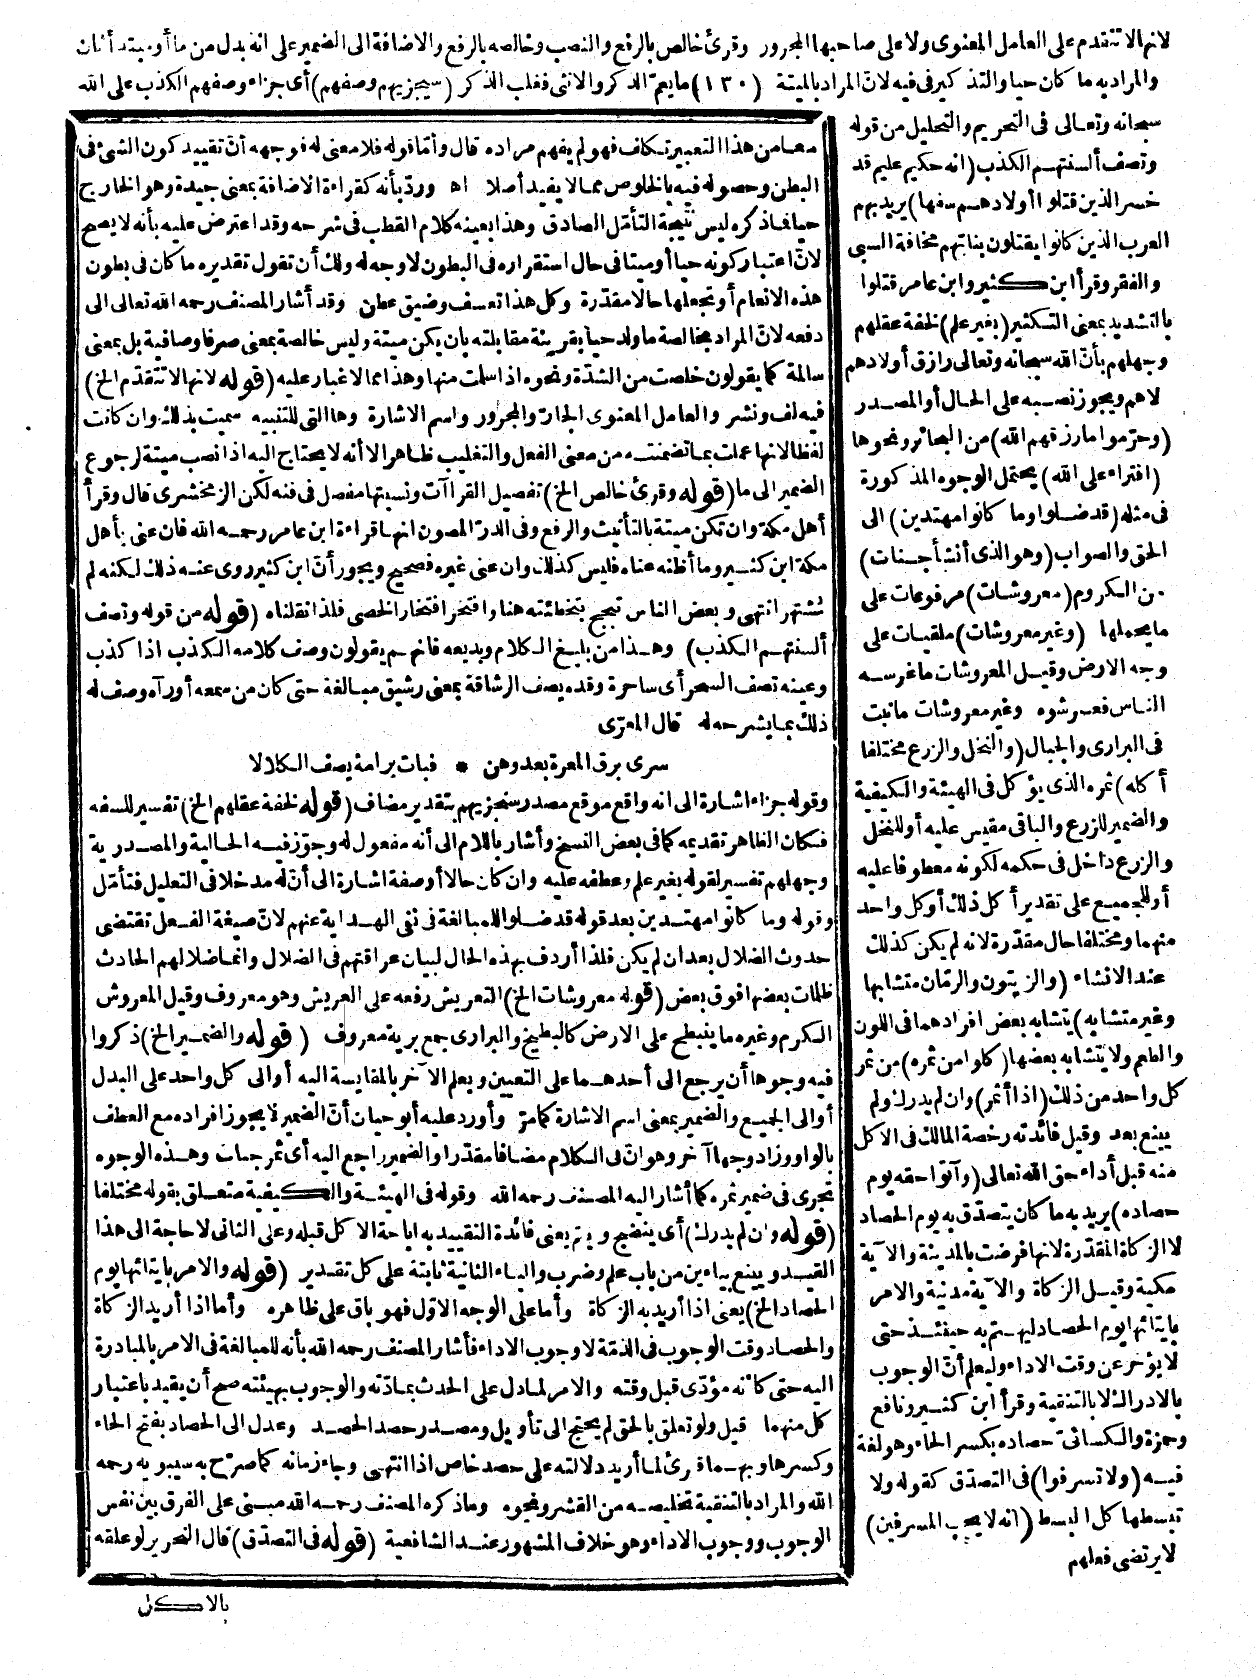 لانها لا تتقدم على العامل المعنوى ولا على صاحبها المجرور وقرئ خالص بالرفع والنصب وخالصه بالرفع والاضافة الى الضمير على انه بدل من ما أو مبتدأ ثان
والمراد به ما كان حيا والتذكير فى فيه لان المراد بالميتة (١٣٠) ما يعم الذكر والانثى فغلب الذكر (سيجزيهم وصفهم) أى جزاء وصفهم الكذب على الله
سبحانه وتعالى فى التحريم والتحليل من قوله
وتصف ألسنتهم الكذب (انه حكيم عليم قد
خسر الذين قتلوا أولادهم سفها) يريد بهم
العرب الذين كانوا يقتلون بناتهم مخافة السبى
والفقر وقرأ ابن كثير وابن عامر قتلوا
بالتشديد بمعنى التكثير (بغير علم) لخفة عقلهم
وجهلهم بأن الله سبحانه وتعالى رازق أولادهم
لاهم ويجوز نصبه على الحال أو المصدر
(وحرموا ما رزقهم الله) من البحائر ونحوها
(افتراء على الله) يحتمل الوجوه المذكورة
فى مثله (قد ضلوا وما كانوا مهتدين) الى
الحق والصواب (وهو الذى أنشأ جنات)
من الكروم (معروشات) مرفوعات على
ما يحملها (وغير معروشات) ملقيات على
وجه الارض وقيل المعروشات ما غرسه
الناس فعرشوه وغير معروشات ما نبت
فى البرارى والجبال (والنخل والزرع مختلفا
أكله) ثمره الذى يؤكل فى الهيئة والكيفية
والضمير للزرع والباقى مقيس عليه أو للنخل
والزرع داخل فى حكمه لكونه معطوفا عليه
أو للجميع على تقدير أكل ذلك أو كل واحد
منهما ومختلفا حال مقدرة لانه لم يكن كذلك
عند الانشاء (والزيتون والرمان متشابها
وغير متشابه) يتشابه بعض افرادهما فى اللون
والطعم ولا يتشابه بعضها (كلوا من ثمره) من ثمر
كل واحد من ذلك (اذا أثمر) وان لم يدرك ولم
يينع بعد وقيل فائدته رخصة المالك فى الاكل
منه قبل أداء حق الله تعالى (وآتوا حقه يوم
حصاده) يريد به ما كان يتصدق به يوم الحصاد
لا الزكاة المقدرة لانها فرضت بالمدينة والآية
مكية وقيل الزكاة والآية مدنية والامر
بايتائها يوم الحصاد ليهتم به حينئذ حتى
لا يؤخر عن وقت الاداء وليعلم أن الوجوب
بالادراك لا بالتنقية وقرأ ابن كثير ونافع
وحمزة والكسائى حصاده بكسر الحاء وهو لغة
فيه (ولا تسرفوا) فى التصدق كقوله ولا
تبسطها كل البسط (انه لا يحب المسرفين)
لا يرتضى فعلهم
معا من هذا التعبير تكاف فهو لم يفهم مراده قال وأما قوله فلا معنى له فوجهه أن تقييد كون الشئ فى
البطن وحصوله فيه بالخلوص مما لا يفيد أصلا اه ورد بأنه كقراءة الاضافة بمعنى جيدة وهو الخارج
حيا فما ذكره ليس نتيجة التأمل الصادق وهذا بعينه كلام القطب فى شرحه وقد اعترض عليه بأنه لا يصح
لان اعتبار كونه حيا أو ميتا فى حال استقراره فى البطون لا وجه له ولك أن تقول تقديره ما كان فى بطون
هذه الانعام أو تجعلها حالا مقدرة وكل هذا تعسف وضيق عطن وقد أشار المصنف رحمه الله تعالى الى
دفعه لان المراد بخالصة ما ولد حيا بقرينة مقابلته بان يكن ميتة وليس خالصة بمعنى صرفا وصافية بل بمعنى
سالمة كما يقولون خلصت من الشدة ونحوه اذا سلمت منها وهذا مما لا غبار عليه (قوله لانها لا تتقدم الخ)
فيه لف ونشر والعامل المعنوى الجار والمجرور واسم الاشارة وها التى للتنبيه سميت بذلك وان كانت
لفظا لانها عملت بما تضمنته من معنى الفعل والتغليب ظاهر الا أنه لا يحتاج اليه اذا نصب ميتة لرجوع
الضمير الى ما (قوله وقرئ خالص الخ) تفصيل القراآت ونسبتها مفصل فى فنه لكن الزمخشرى قال وقرأ
أهل مكة وان تكن ميتة بالتأنيث والرفع وفى الدر المصون انها قراءة ابن عامر رحمه الله فان عنى بأهل
مكة ابن كثير وما أظنه عناه فليس كذلك وان عنى غيره فصحيح ويجوز أن ابن كثير روى عنه ذلك لكنه لم
يشتهر انتهى وبعض الناس تبجح بتخطئته هنا وافتخر افتخار الخصى فلذا نقلناه (قوله من قوله وتصف
ألسنتهم الكذب) وهذا من بليغ الكلام وبديعه فانهم يقولون وصف كلامه الكذب اذا كذب
وعينه تصف السحر أى ساحرة وقده يصف الرشاقة بمعنى رشيق مبالغة حتى كان من سمعه أو رآه وصف له
ذلك بما يشرحه له قال المعرى
سرى برق المعرة بعد وهن * فبات برامة يصف الكلالا
وقوله جزاء اشارة الى انه واقع موقع مصدر سنجزيهم بتقدير مضاف (قوله لخفة عقلهم الخ) تفسير للسفه
فكان الظاهر تقديمه كما فى بعض النسخ وأشار باللام الى أنه مفعول له وجوز فيه الحالية والمصدرية
وجهلهم تفسير لقوله بغير علم وعطفه عليه وان كان حالا أو صفة اشارة الى أن له مدخلا فى التعليل فتأمل
وقوله وما كانوا مهتدين بعد قوله قد ضلوا للمبالغة فى نفى الهداية عنهم لان صيغة الفعل تقتضى
حدوث الضلال بعد ان لم يكن فلذا أردف بهذه الحال لبيان عراقتهم فى الضلال وانما ضلالهم الحادث
ظلمات بعضها فوق بعض (قوله معروشات الخ) التعريش رفعه على العريش وهو معروف وقيل المعروش
الكرم وغيره ما ينبطح على الارض كالبطيخ والبرارى جمع برية معروف (قوله والضمير الخ) ذكروا
فيه وجوها أن يرجع الى أحدهما على التعيين ويعلم الآخر بالمقايسة اليه أو الى كل واحد على البدل
أو الى الجميع والضمير بمعنى اسم الاشارة كما مر وأورد عليه أبو حيان أن الضمير لا يجوز افراده مع العطف
بالواو وزاد وجها آخر وهو ان فى الكلام مضافا مقدرا والضمير راجع اليه أى ثمر جنات وهذه الوجوه
تجرى فى ضمير ثمره كما أشار اليه المصنف رحمه الله وقوله فى الهيئة والكيفية متعلق بقوله مختلفا
(قوله وان لم يدرك) أى ينضج ويتم يعنى فائدة التقييد به اباحة الاكل قبله وعلى الثانى لا حاجة الى هذا
القيد ويينع بياءين من باب علم وضرب والياء الثانية ثابتة على كل تقدير (قوله والامر بايتائها يوم
الحصاد الخ) يعنى اذا أريد به الزكاة وأما على الوجه الاول فهو باق على ظاهره وأما اذا أريد الزكاة
والحصاد وقت الوجوب فى الذمة لا وجوب الاداء فأشار المصنف رحمه الله بأنه للمبالغة فى الامر بالمبادرة
اليه حتى كأنه مؤدى قبل وقته والامر لما دل على الحدث بمادته والوجوب بهيئته صح أن يقيد باعتبار
كل منهما قيل ولو تعلق بالحق لم يحتج الى تأويل ومصدر حصد الحصد وعدل الى الحصاد بفتح الحاء
وكسرها وبهما قرئ لما أريد دلالته على حصد خاص اذا انتهى وجاء زمانه كما صرح به سيبويه رحمه
الله والمراد بالتنقية تخليصه من القشر ونحوه وما ذكره المصنف رحمه الله مبنى على الفرق بين نفس
الوجوب ووجوب الاداء وهو خلاف المشهور عند الشافعية (قوله فى التصدق) قال النحرير لو علقه
بالاكل